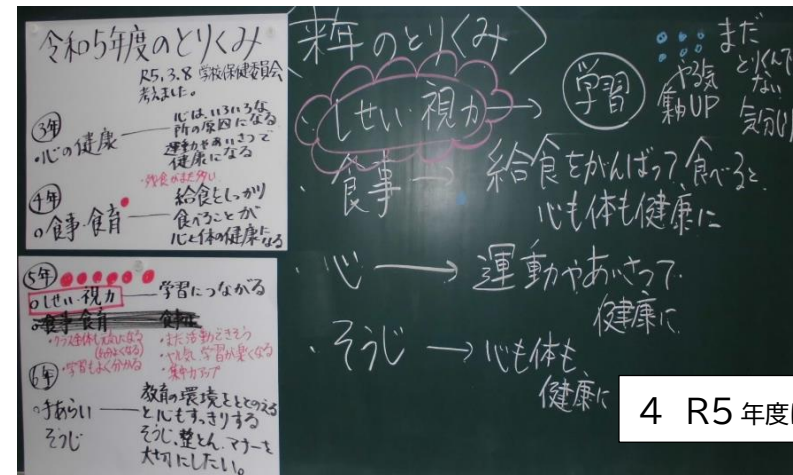 令和5年度のとりくみ
R5.3.8 学校保健委員会
考えました。
3年
・心の健康 心は、いろいろな
所の原因になる
運動やあいさつで
健康になる
・残食がまだ多い
4年
○食事・食育 給食をしっかり
食べることが
心と体の健康になる
5年
○しせい・視力 学習につながる
食事・食育
・学習もよく分かる
・まだ活動できそう
・やる気、学習が楽しくなる
・集中力アップ
6年
○手あらい 教育の環境をととのえる
と心もすっきりする
そうじ そうじ、整とん、マナーを
大切にしたい。
〈来年のとりくみ〉
・しせい・視力 → 学習
やる気
集中UP
まだ
とりくんで
ない
・食事 → 給食をがんばって食べると、
心も体も健康に
・心 → 運動やあいさつで
健康に
・そうじ → 心も体も
健康に
4 R5年度